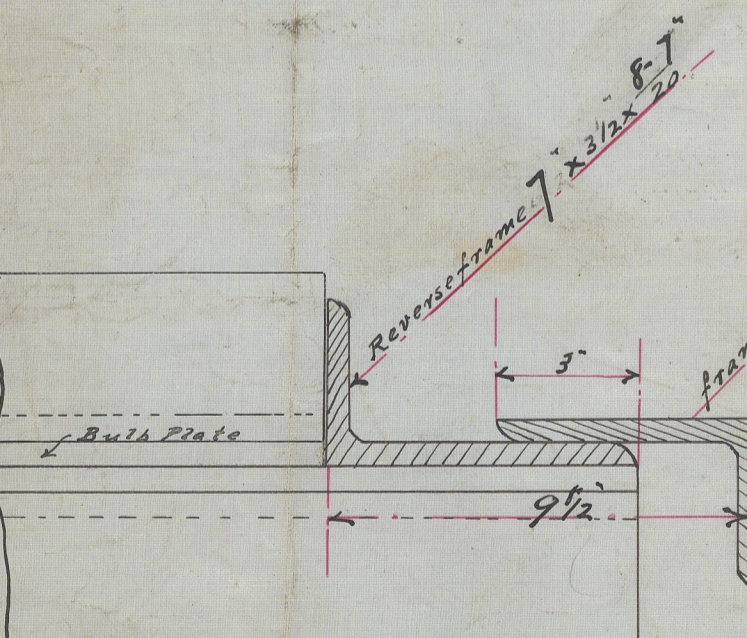 Reverse frame 7" x 3 1/2" x 8-7"/20
3"
fram
Bulb Plate
9 1/2"